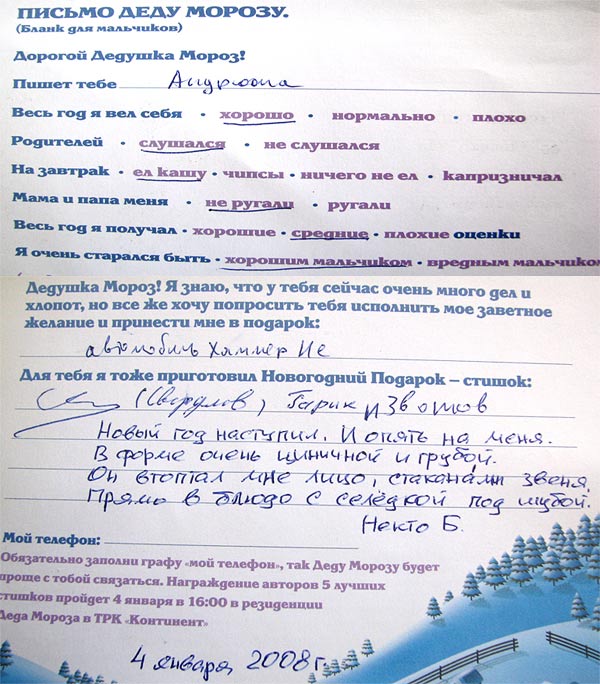 ПИСЬМО ДЕДУ МОРОЗУ.
(Бланк для мальчиков)
Дорогой Дедушка Мороз!
Пишет тебе Андрюша
Весь год я вел себя • хорошо • нормально • плохо
Родителей • слушался • не слушался
На завтрак • ел кашу • чипсы • ничего не ел • капризничал
Мама и папа меня • не ругали • ругали
Весь год я получал • хорошие • средние • плохие оценки
Я очень старался быть • хорошим мальчиком • вредным мальчиком
Дедушка Мороз! Я знаю, что у тебя сейчас очень много дел и
хлопот, но все же хочу попросить тебя исполнить мое заветное
желание и принести мне в подарок:
автомобиль Хаммер
Для тебя я тоже приготовил Новогодний Подарок – стишок:
(Свердлов) Гарик и Звонков
Новый год наступил. И опять на меня.
В форме очень циничной и грубой.
Он втоптал мне лицо, стаканами звеня,
Прямо в блюдо с селёдкой под шубой.
Некто Б.
Мой телефон:
Обязательно заполни графу «мой телефон», так Деду Морозу будет
проще с тобой связаться. Награждение авторов 5 лучших
стишков пройдет 4 января в 16:00 в резиденции
Деда Мороза в ТРК «Континент»
4 января 2008 г.